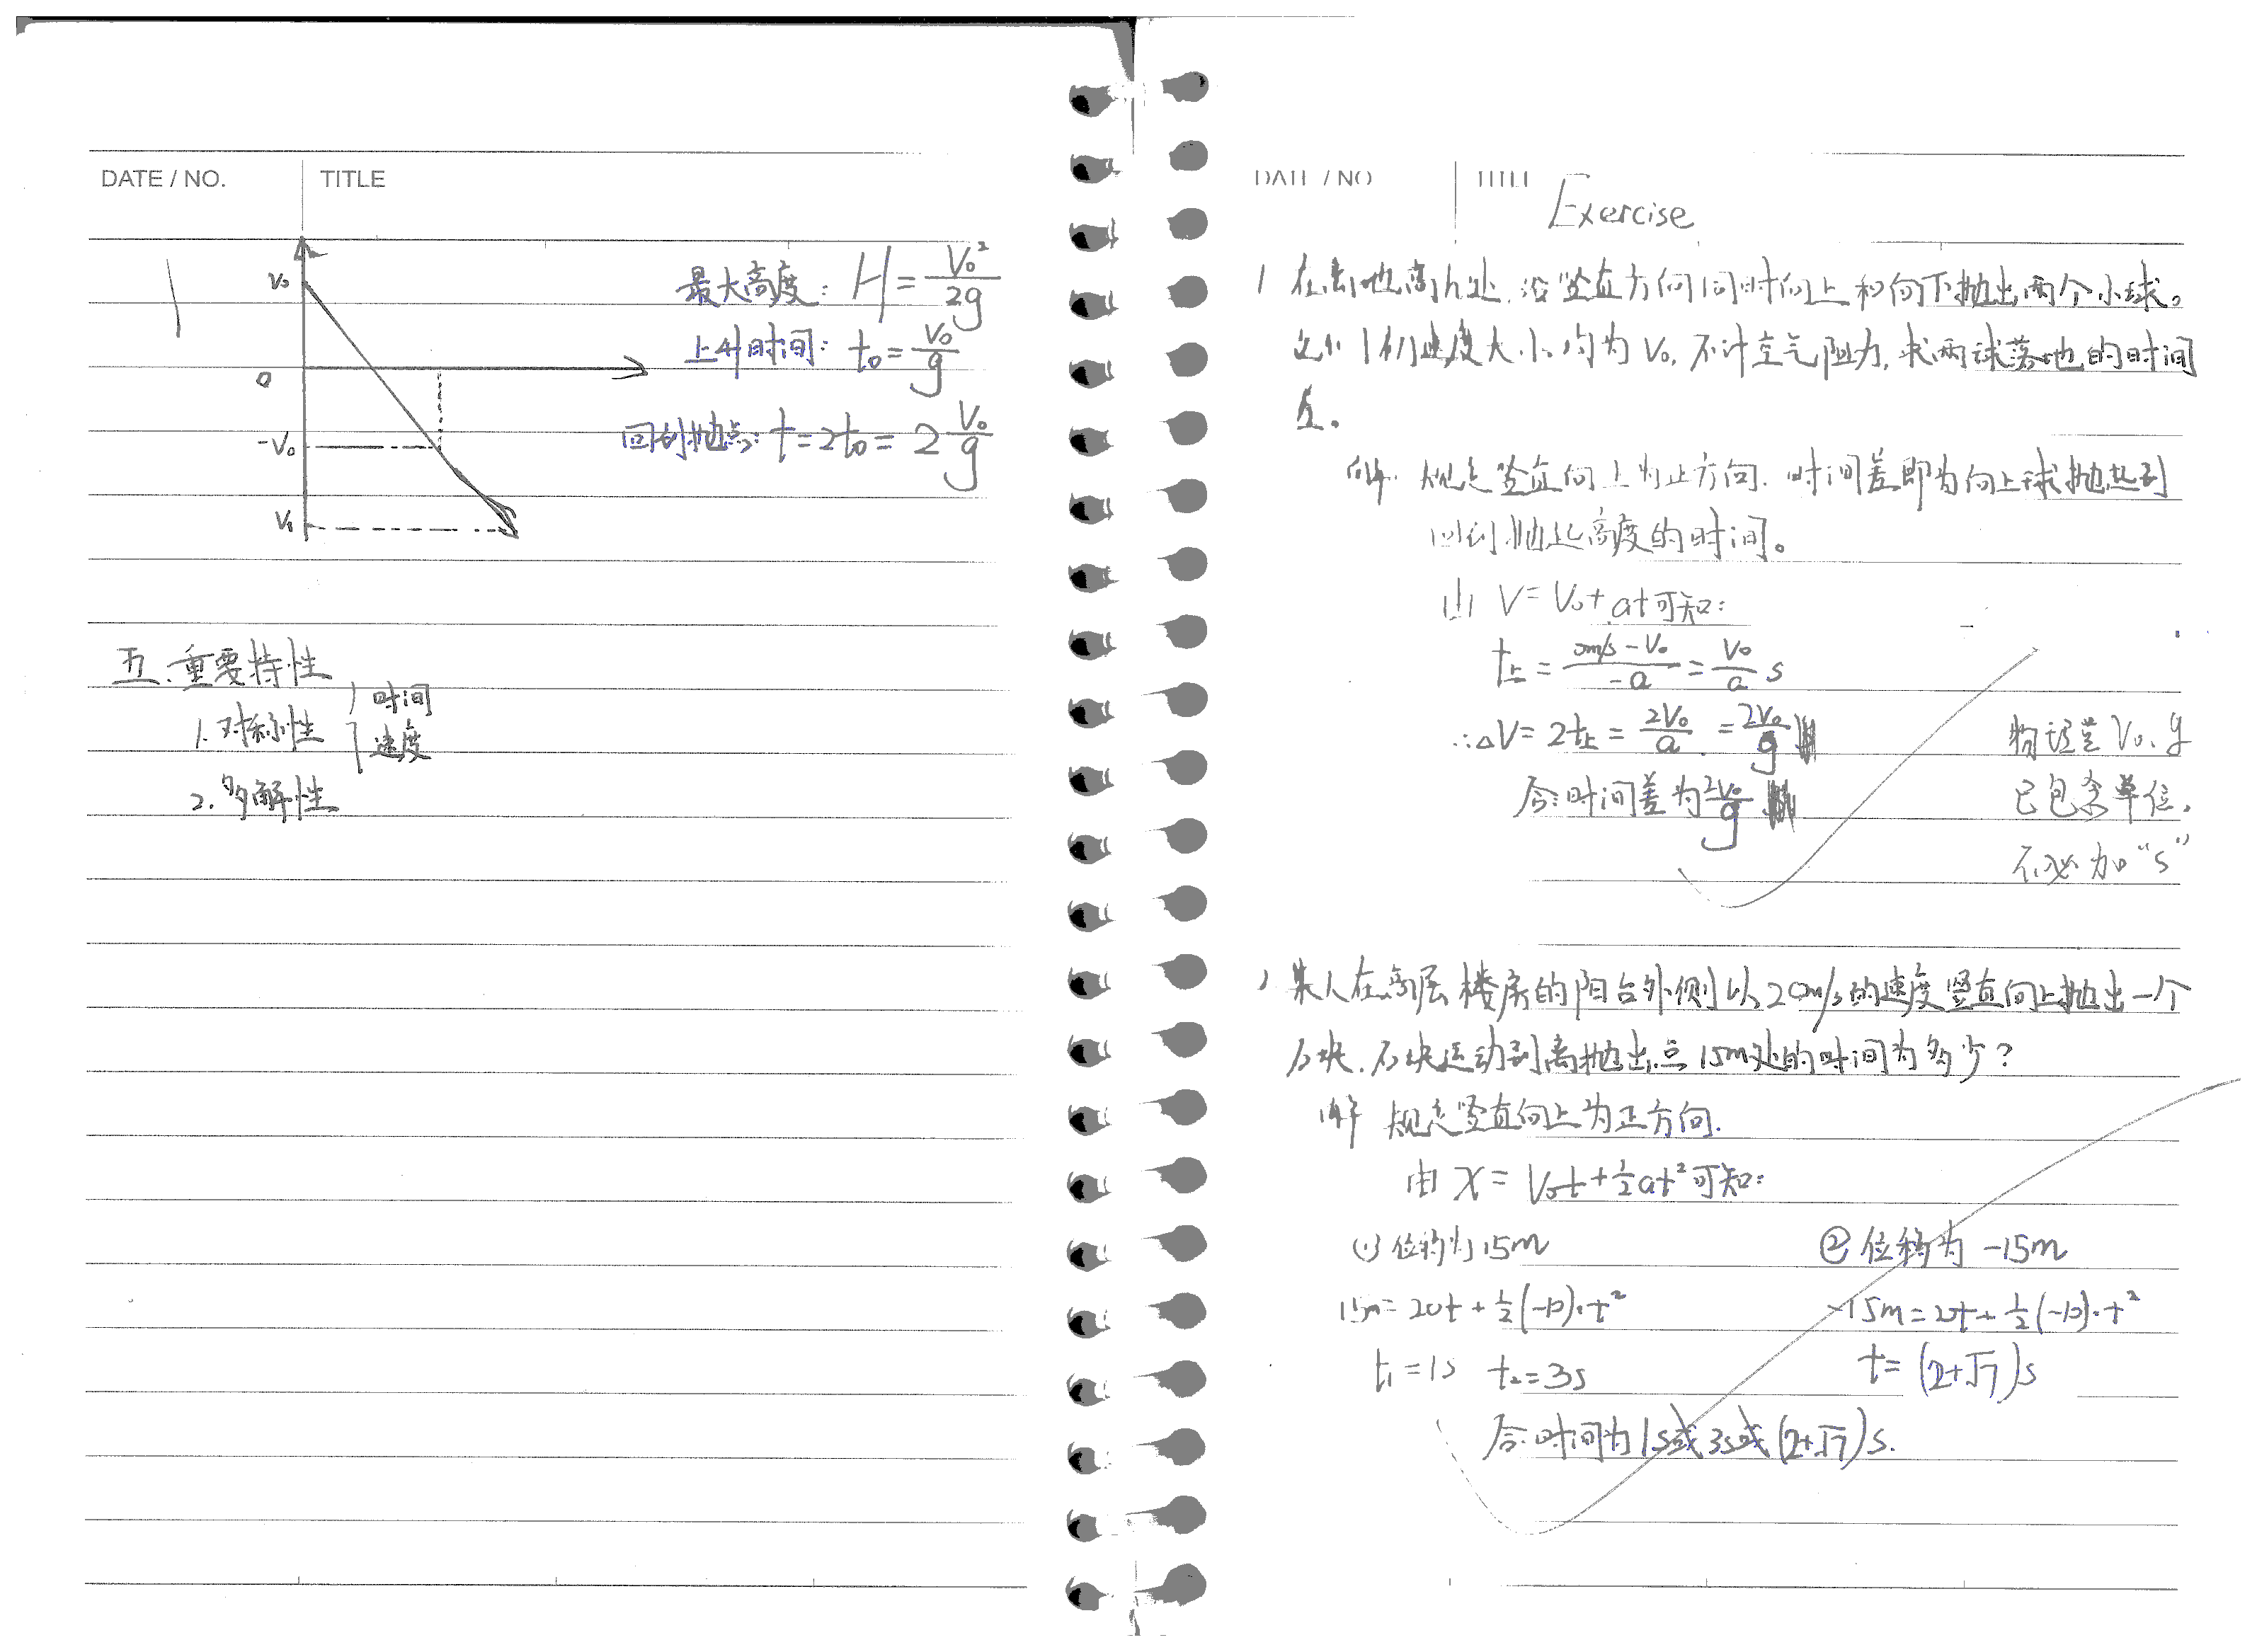 DATE / NO. TITLE
V₀
0
-V₀
V₁
最大高度: H = V₀²/2g
上升时间: t₀ = V₀/g
回到抛点: t = 2t₀ = 2 V₀/g
五.重要特性
1.对称性 时间
速度
2.多解性
DATE / NO TITLE Exercise
1 在离地高h处,沿竖直方向同时向上和向下抛出两个小球。
初速度大小均为V₀,不计空气阻力,求两球落地的时间
差。
解: 规定竖直向上为正方向. 时间差即为向上球抛起到
回到抛起高度的时间。
由 V = V₀ + at可知:
t上 = (0m/s - V₀)/-a = V₀/a s
∴ΔV = 2t上 = 2V₀/a = 2V₀/g
答:时间差为2V₀/g
物理量 V₀、g
已包含单位,
不必加“s”
某人在高层楼房的阳台外侧以20m/s的速度竖直向上抛出一个
石块.石块运动到离抛出点15m处的时间为多少?
解 规定竖直向上为正方向.
由 x = V₀t + ½at²可知:
① 位移为15m
15m = 20t + ½(-10)·t²
t₁ = 1s t₂ = 3s
② 位移为 -15m
-15m = 20t + ½(-10)·t²
t = (2+√7)s
答:时间为1s或3s或(2+√7)s.